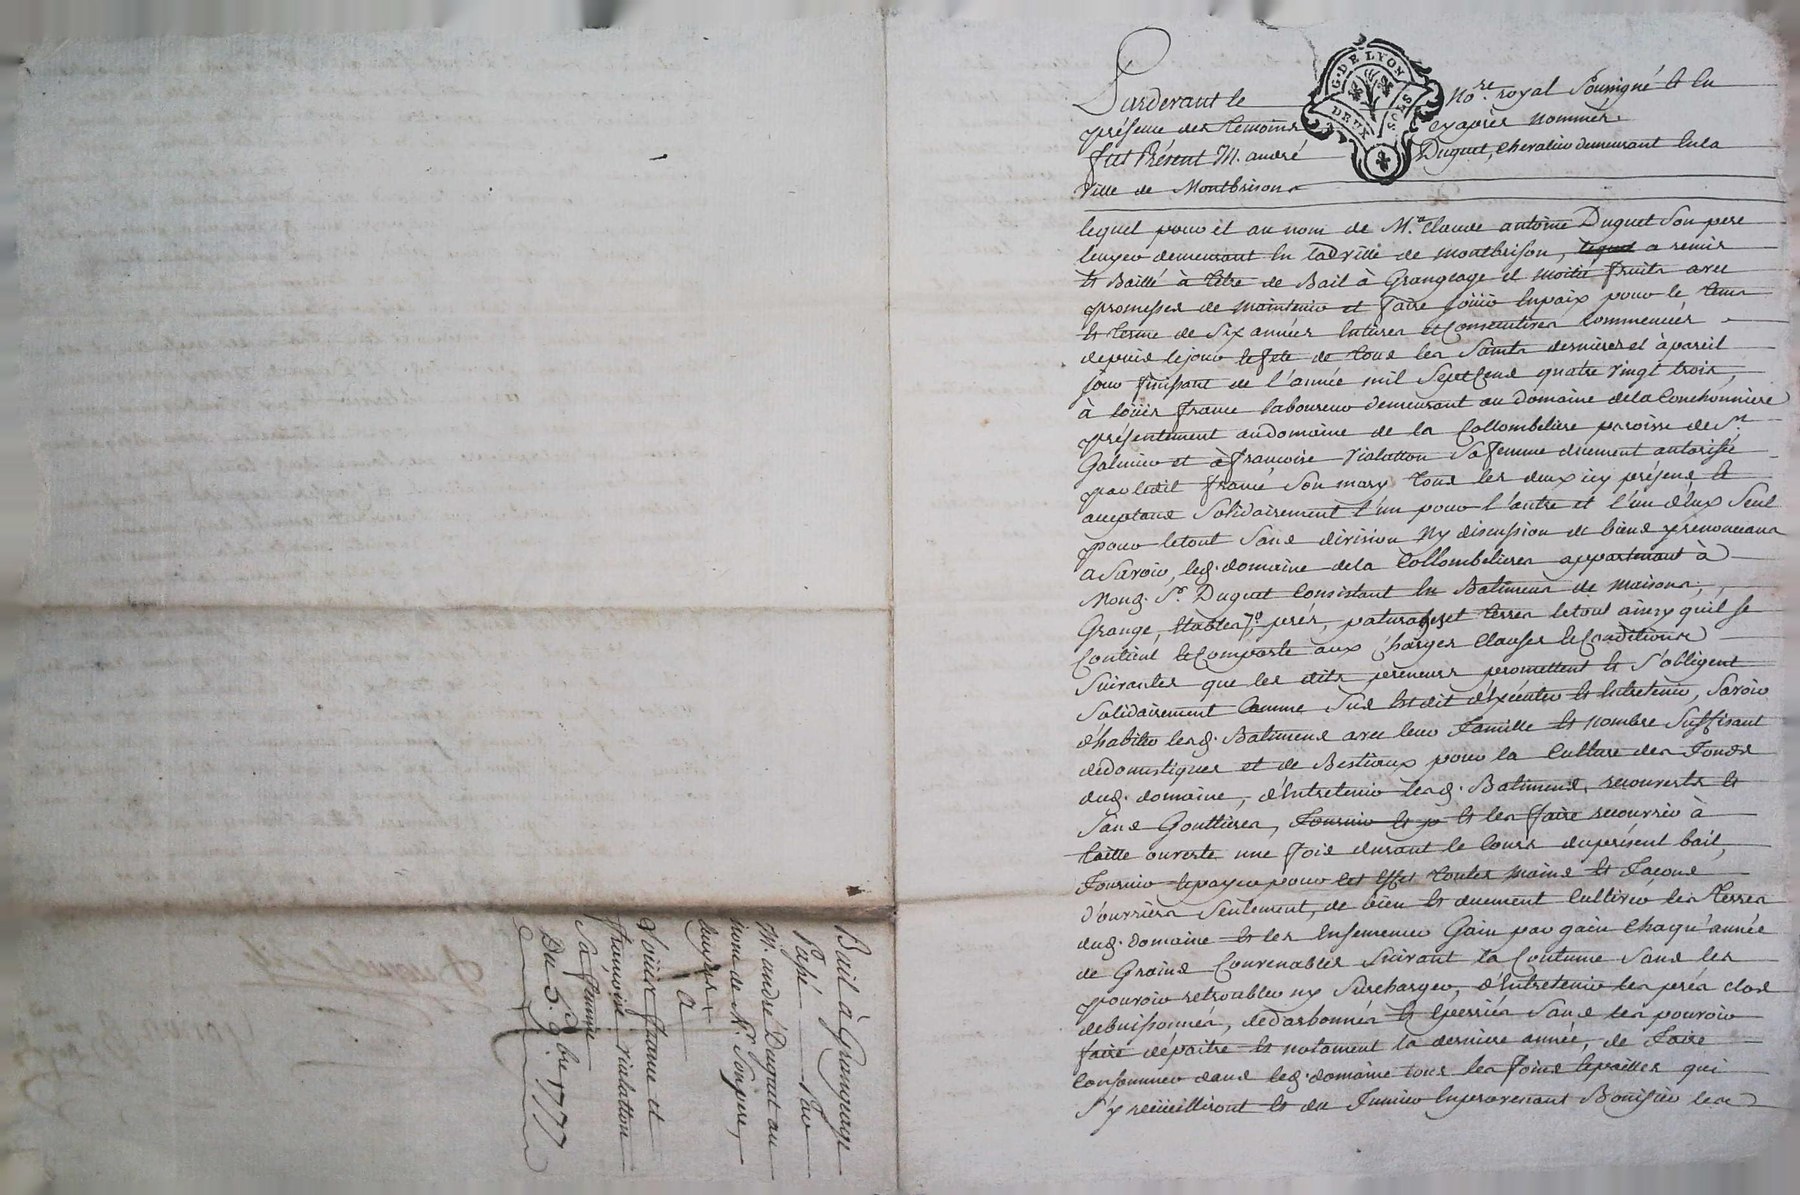 G. DE LYON
DEUX SOLS
Pardevant le No.re royal Soussigné et en
présence des temoins cyaprès nommés
fut Présent M. andré Duguet, chevalier demeurant en la
ville de Montbrison
lequel pour et au nom de M.re Claude antoine Duguet Son pere
ecuyer demeurant en lad ville de montbrison, lequel a remis
et Baillé à titre de Bail à Grangeage et moitié fruits avec
promesses de maintenir et faire jouir en paix pour le tems
et terme de Six années entieres et Consecutives Commencées
depuis le jour et fete de tous les Saints derniere et à pareil
jour finissant de l'année mil Sept Cens quatre vingt trois,
à loüis france laboureur demeurant au domaine de la Conchonniere
présentement au domaine de la Collombeliere paroisse de St
Galmier et à francoise vialatton Sa femme duement autorisée
par ledit france Son mary tous les deux icy présens et
acceptans Solidairement l'un pour l'autre et l'un d'eux Seul
pour le tout Sans division ny discussion de biens y renoncans
a Savoir, led. domaine de la Collombeliere appartenant à
Mond. Sr. Duguet Consistant en Batimens de maisons,
Grange, Etables, prés, paturages et terres le tout ainsy qu'il se
Contient et Comporte aux charges Clauses et Conditions
Suivantes que les dits preneurs promettent et S'obligent
Solidairement Comme Sus est dit d'exécuter et Entretenir, Savoir
d'habiter lesd. Batimens avec leur famille et nombre Suffisant
de domestiques et de Bestiaux pour la Culture des fonds
dud. domaine, d'entretenir lesd. Batimens recouverts et
Sans Gouttieres, et les faire recouvrir à
taille ouverte une fois durant le Cours du présent bail,
fournir et payer pour cet effet toutes mains et façons
d'ouvriers Seulement, de bien et duement Cultiver les terres
dud. domaine et les Ensemencer Gain par gain Chaqu'année
de Grains Convenables Suivant la Coutume Sans les
pouvoir retroubler ny Surcharger, d'entretenir les prés clos
debuissonnés, dedarbonnés et épierrés Sans les pouvoir
faire dépaitre et notament la derniere année, de faire
Consommer dans led. domaine tous les foins et pailles qui
S'y recüeilliront et du fumier En provenant Bonifier les
Bail à Grangeage
Passé Par
M. andré Duguet au
nom de Mr. Son pere,
Ecuyer
A
Loüis france et
francoise vialatton
Sa femme
Du 5. 9bre 1777